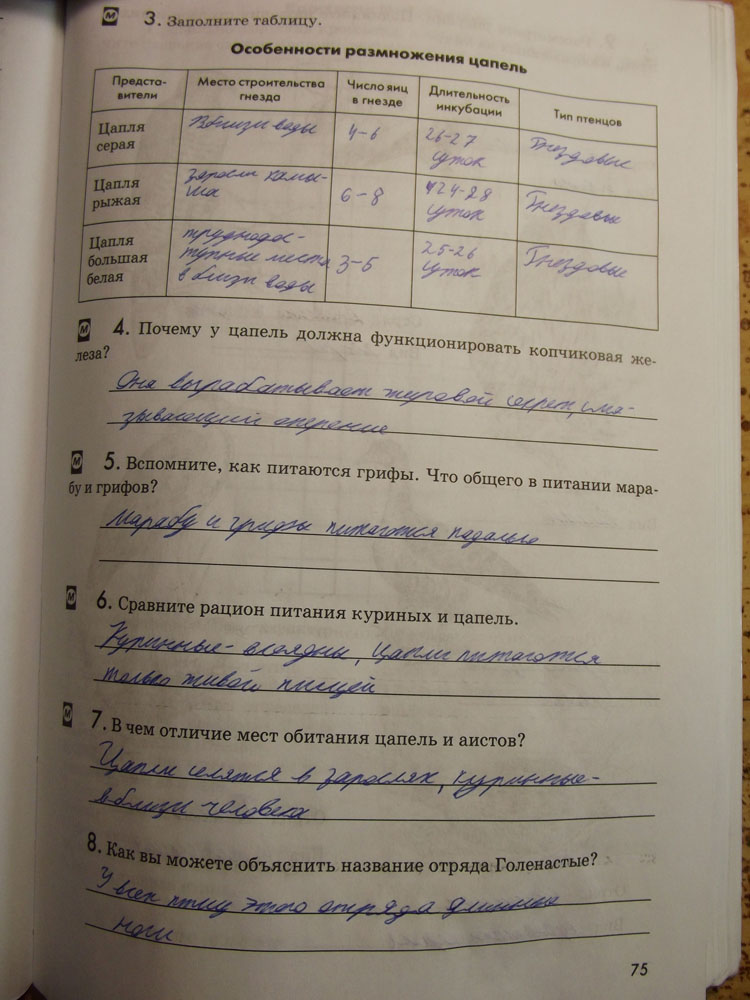 М 3. Заполните таблицу.
Особенности размножения цапель
Предста- Место строительства Число яиц Длительность Тип птенцов
вители гнезда в гнезде инкубации
Цапля Вблизи воды 4–6 26-27 Гнездовые
серая суток
Цапля заросли камы- 6–8 24-28 Гнездовые
рыжая ша суток
Цапля труднодос- 3–5 25-26 Гнездовые
большая тупные места суток
белая в близи воды
М 4. Почему у цапель должна функционировать копчиковая же-
леза?
Она вырабатывает жировой секрет, сма-
зывающий оперение
М 5. Вспомните, как питаются грифы. Что общего в питании мара-
бу и грифов?
Марабу и грифы питаются падалью
М 6. Сравните рацион питания куриных и цапель.
Куринные- всеядны, цапли питаются
только живой пищей
М 7. В чем отличие мест обитания цапель и аистов?
Цапли селятся в зарослях, куринные-
в близи человека
8. Как вы можете объяснить название отряда Голенастые?
У всех птиц этого отряда длинные
ноги
75